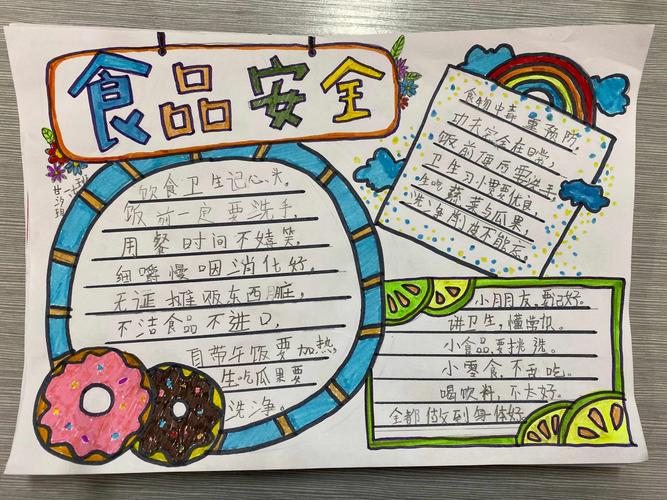 食品安全
饮食卫生记心头,
饭前一定要洗手,
用餐时间不嬉笑,
细嚼慢咽消化好。
无证摊贩东西脏,
不洁食品不进口,
自带午饭要加热
生吃瓜果要
洗净。
食物中毒重预防。
功夫完全在日常。
饭前便后要洗手,
卫生习惯要优良,
生吃蔬菜与瓜果,
洗净削皮不能忘。
小朋友,要记好。
讲卫生,懂常识。
小食品要挑选。
小零食,不乱吃。
喝饮料,不太好。
全都做到身体好。